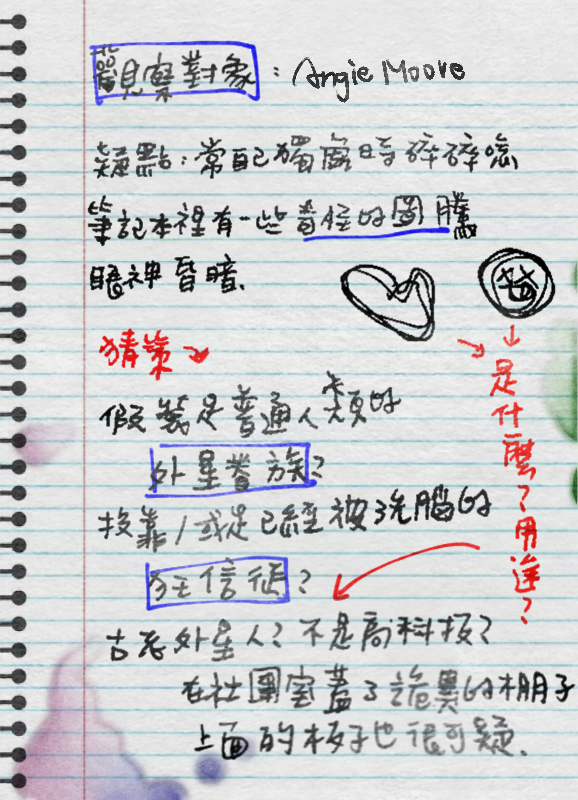 觀察對象：Angie Moore
疑點：常自己獨處時碎碎唸
筆記本裡有一些奇怪的圖騰
眼神昏暗.
猜策
假裝是普通人類的
外星眷族？
投靠/或是已經被洗腦的
狂信徒？
古老外星人？不是高科技？
在社團室蓋了詭異的棚子
上面的板子也很可疑.
是什麼？用途？